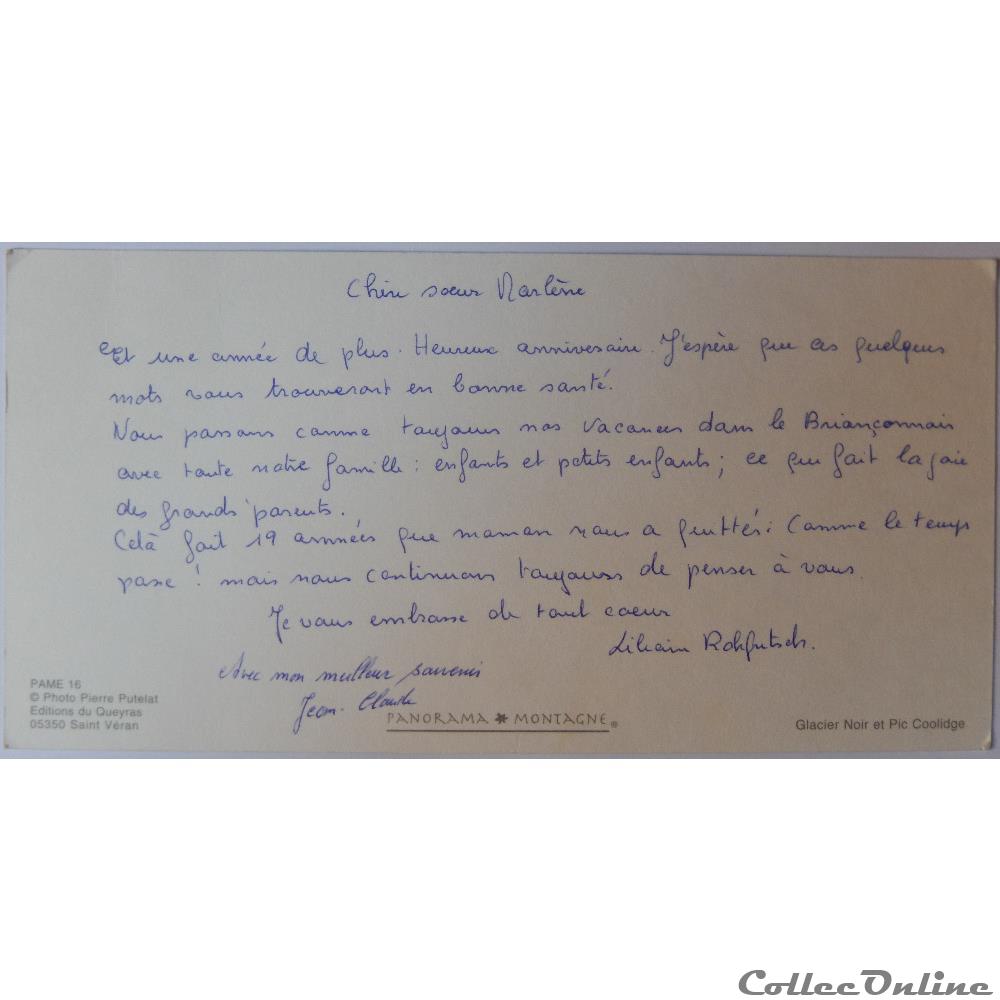 Chère soeur Marlène
Et une année de plus. Heureux anniversaire. J'espère que ces quelques
mots vous trouveront en bonne santé.
Nous passons comme toujours nos vacances dans le Briançonnais
avec toute notre famille : enfants et petits enfants ; ce qui fait la joie
des grands parents.
Celà fait 19 années que maman nous a quittés : Comme le temps
passe ! mais nous continuons toujours de penser à vous.
Je vous embrasse de tout coeur
Liliane
Avec mon meilleur souvenir
Jean-Claude
PAME 16
© Photo Pierre Putelat
Editions du Queyras
05350 Saint Véran
PANORAMA MONTAGNE®
Glacier Noir et Pic Coolidge
CollecOnline